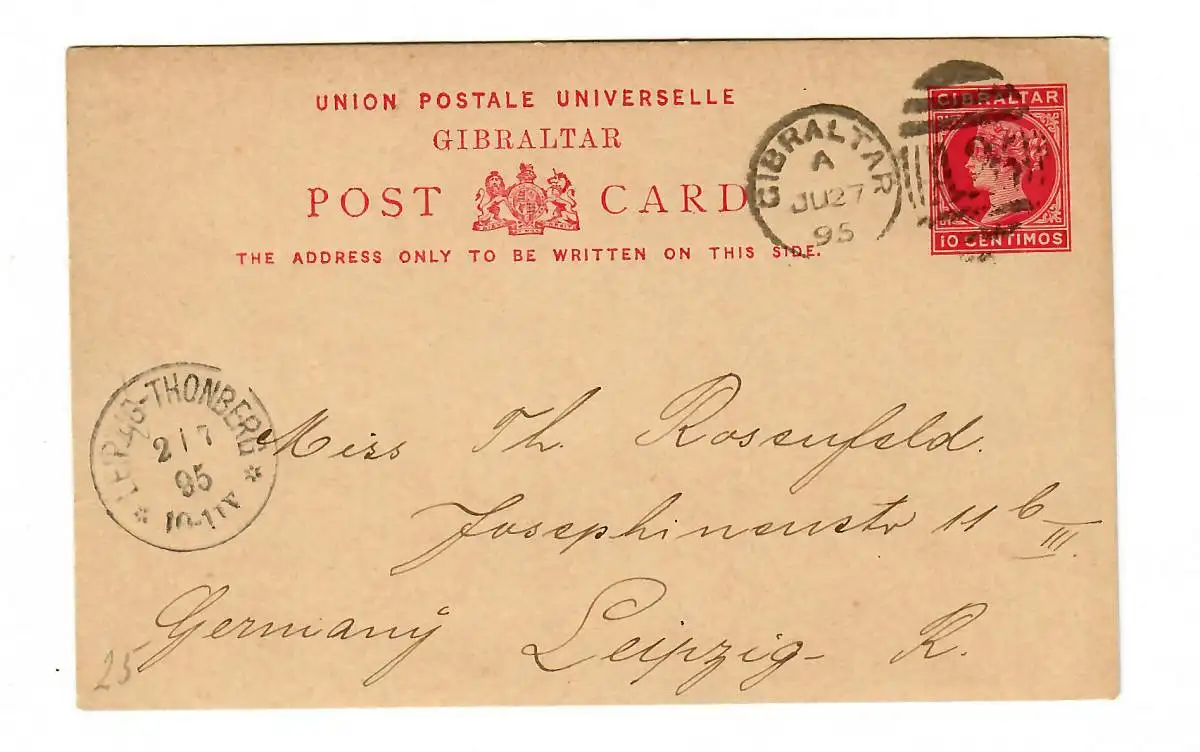 UNION POSTALE UNIVERSELLE
GIBRALTAR
POST CARD
THE ADDRESS ONLY TO BE WRITTEN ON THIS SIDE.
GIBRALTAR
A
JU27
95
GIBRALTAR
10 CENTIMOS
LEIPZIG-THONBERG
2 7
95
* 10-11V *
Miss Th. Rosenfeld.
Josephinenstr 11 b
III.
Germany Leipzig R.
25